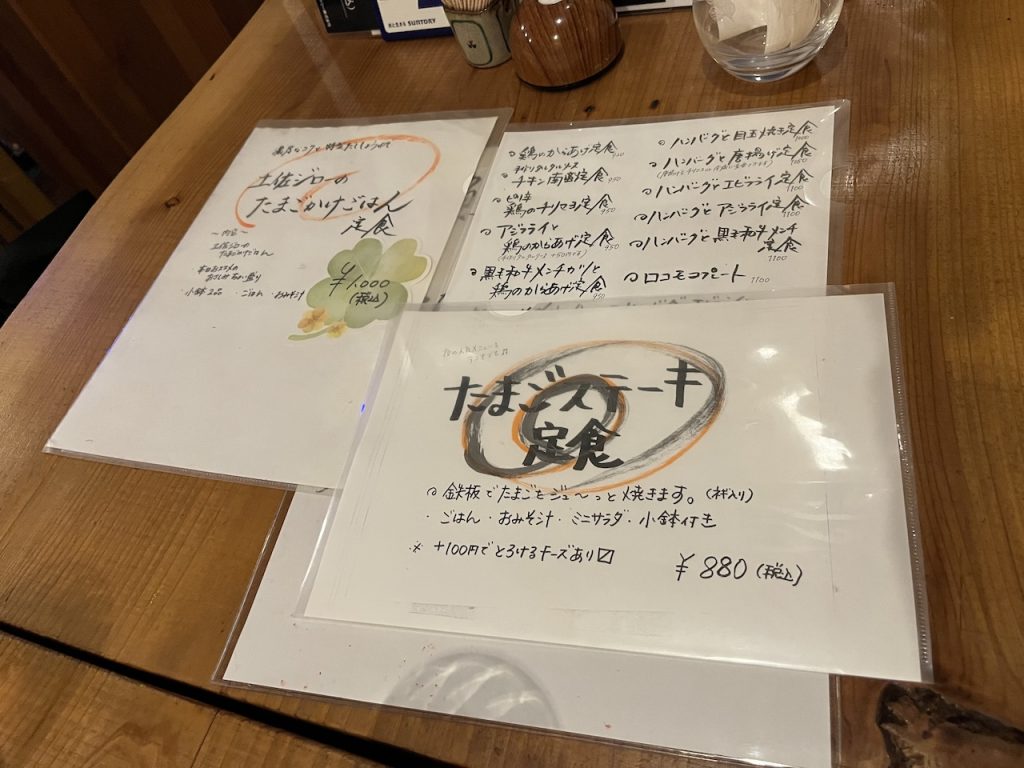 SUNTORY
濃厚なコクと
土佐ジローの
たまごかけごはん
定食
～内容～
土佐ジローの
たまごかけごはん
本日おススメの
小鉢2品 ・ごはん ・おみそ汁
¥1,000
(税込)
鶏のからあげ定食
チキン南蛮定食 950
鶏のチリマヨ定食 950
アジフライと
鶏のからあげ定食 950
黒毛和牛メンチカツと
鶏のからあげ定食 950
ハンバーグと目玉焼き定食 1000
ハンバーグと唐揚げ定食
ハンバーグとエビフライ定食 1100
ハンバーグとアジフライ定食 1100
ハンバーグと黒毛和牛メンチ
定食 1100
ロコモコプレート 1100
たまごステーキ
定食
鉄板でたまごをジュ～っと焼きます。(ネギ入り)
・ごはん・おみそ汁・ミニサラダ・小鉢付き
※ +100円でとろけるチーズあり
¥880(税込)